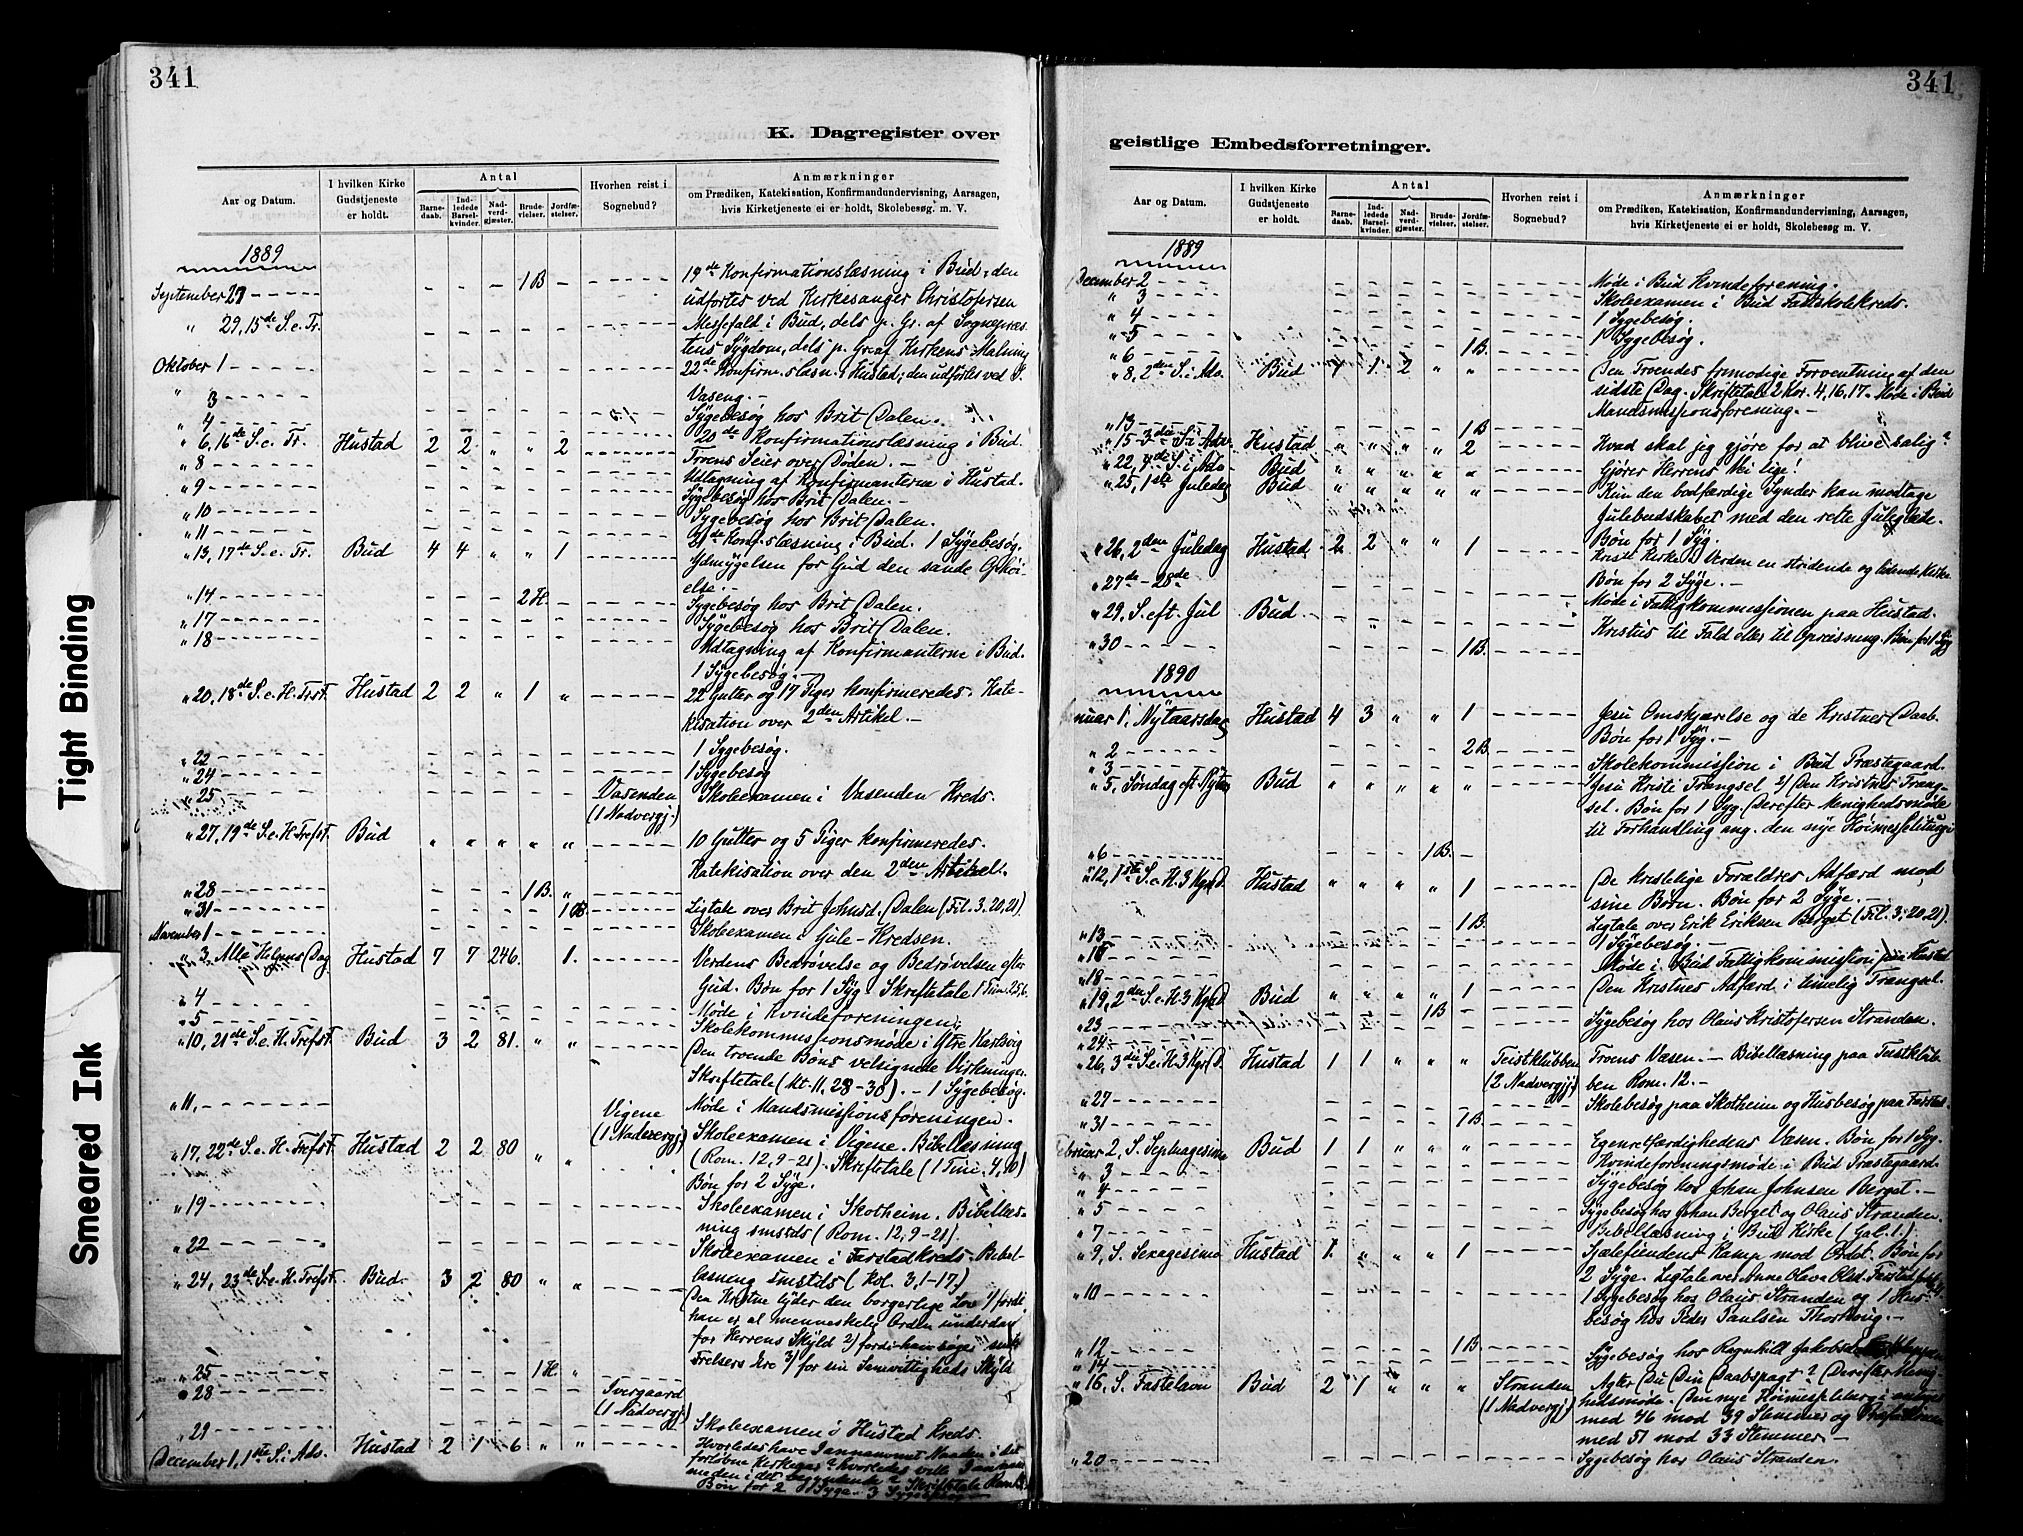 341
K. Dagregister over
Aar og Datum.
I hvilken Kirke Gudstjeneste er holdt.
Antal
Barnedaab.
Indledede Barselkvinder.
Nadverdgjæster.
Brudevielser.
Jordfæstelser.
Hvorhen reist i Sognebud?
Anmærkninger
om Prædiken, Katekisation, Konfirmandundervisning, Aarsagen,
hvis Kirketjeneste ei er holdt, Skolebesøg m. V.
1889
September 27 1 B 19de Konfirmationslæsning i Bud, den
udførtes ved Kirkesanger Christofersen
" 29, 15de S. e. Tr. Messefald i Bud, dels p. Gr. af Sognepræs-
tens Sygdom, dels p. Gr. af Kirkens Malning
Oktober 1 22de Konfirm.slæsn. i Hustad; den udførtes ved S.
Vaseng.
" 3
" 4 Sygebesøg hos Brit Dalen.
" 6, 16de S. e. Tr. Hustad 2 2 " " 2 20de Konfirmationslæsning i Bud.
" 8 Troens Seier over Døden.
" 9 Udtagning af Konfirmanterne i Hustad.
Sygebesøg hos Brit Dalen.
" 10 Sygebesøg hos Brit Dalen.
" 11 21de Konf.slæsning i Bud. 1 Sygebesøg.
" 13, 17de S. e. Tr. Bud 4 4 " " 1 Ydmygelsen for Gud den sande Ophøi-
else.
" 14 2 H. Sygebesøg hos Brit Dalen.
" 17 Sygebesøg hos Brit Dalen.
" 18 Udtagning af Konfirmanterne i Bud.
1 Sygebesøg.
" 20, 18de S. e. H. Trst. Hustad 2 2 " 1 " 22 Gutter og 17 Piger konfirmeredes. Kate-
kisation over 2den Artikel.
" 22 1 Sygebesøg.
" 24 1 Sygebesøg
" 25 Vasenden Skoleexamen i Vasenden Kreds.
(1 Nadvergj.)
" 27, 19de S. e. H. Trefst. Bud " " " " " 10 Gutter og 5 Piger konfirmeredes.
Katekisation over den 2den Artikel.
" 28 1 B. "
" 31 1 B. Ligtale over Brit Johnsd. Dalen (Fil. 3, 20, 21).
November 1 Skoleexamen i Gule-Kredsen.
" 3, Alle Helgens Dag Hustad 7 7 246. 1. Verdens Bedrøvelse og Bedrøvelsen efter
Gud. Bøn for 1 Syg. Skriftetale 1 Tim. 2,5,6.
" 4 Møde i Kvindeforeningen.
" 5 Skolekommissionsmøde i Ytre Karlsvig
" 10, 21de S. e. H. Trefst. Bud 3 2 81. " " Den troende Bøns velsignede Virkninger.
Skriftetale (Mt. 11, 28-30). - 1 Sygebesøg.
" 11. Vigene Møde i Mandsmissionsforeningen.
(1 Nadvergj.) Skoleexamen i Vigene. Bibellæsning
" 17, 22de S. e. H. Trefst. Hustad 2 2 80 " " (Rom. 12, 9-21). Skriftetale (1 Tim. 4, 10)
Bøn for 2 Syge.
" 19 Skoleexamen i Skotheim. Bibellæs-
ning smstds (Rom. 12, 9-21).
" 22 Skoleexamen i Farstadkreds. Bibel-
læsning smstds (Kol. 3, 1-17.)
" 24, 23de S. e. H. Trefst. Bud. 3 2 80 " " Den Kristne lyder den borgerlige Lov 1) fordi
han er al menneskelig Orden underdan
for Herrens Skyld 2) fordi han søger sin
Frelsers Ære 3) for sin Samvittigheds Skyld
" 25 1 H. "
" 28 Tvergaard
(1 Nadvergj.)
" 29 Skoleexamen i Hustad Kreds.
December 1, 1ste S. i Adv. Hustad 2 1 6 " " Hvorledes have I annammet Naaden i det
forløbne Kirkeaar? hvorledes vil I
i det begyndende? Skriftetale
Bøn for 2 Syge. 3 Sygebesøg
341
geistlige Embedsforretninger.
Aar og Datum.
I hvilken Kirke Gudstjeneste er holdt.
Antal
Barnedaab.
Indledede Barselkvinder.
Nadverdgjæster.
Brudevielser.
Jordfæstelser.
Hvorhen reist i Sognebud?
Anmærkninger
om Prædiken, Katekisation, Konfirmandundervisning, Aarsagen,
hvis Kirketjeneste ei er holdt, Skolebesøg m. V.
1889
December 2 Møde i Bud Kvindeforening.
" 3 Skoleexamen i Bud Fastskolekreds.
" 4 1 Sygebesøg.
" 5 1 Sygebesøg.
" 6 1 B.
" 8, 2den S. i Adv. Bud 4 1 2 " " Den Troendes frimodige Forventning af den
sidste Dag. Skriftetale 2 Kor. 4, 16, 17. Møde i Bud
Mandsmissionsforening.
" 13 1 B
" 15 3die S. i Adv. Hustad " " " " 2 Hvad skal jeg gjøre for at blive salig?
" 22, 4de S. i Adv. Bud " " " " " Gjører Herrens Vei lige!
" 25, 1ste Juledag Bud " " " " " Kun den bodfærdige Synder kan modtage
Julebudskabet med den rette Juleglæde.
Bøn for 1 Syg.
" 26, 2den Juledag Hustad 2 2 " " 1 Kristi Kirke i Verden en stridende og lidende Kirke
Bøn for 2 Syge.
" 27de - 28de Møde i Fattigkommissionen paa Hustad.
" 29. S. eft. Jul Bud Kristus til Fald eller til Opreisning. Bøn for 1 Syg
" 30 1 B.
1890
Januar 1. Nytaarsdag Hustad 4 3 " " 1 Jesu Omskjærelse og de Kristnes Daab.
Bøn for 1 Syg.
" 2 2 B.
" 3 Skolekommission i Bud Præstegaard.
" 5, Søndag eft. Nytaar Bud " " " " " Jesu Kristi Trængsel 2) Den Kristnes Træng-
sel. Bøn for 1 Syg. Derefter Menighedsmøde
til Forhandling ang. den nye Høimesseliturgi
" 6 1 B.
" 12, 1ste S. e. H. 3 Kgrs D. Hustad " " " " 1 De kristelige Forældres Adfærd mod
sine Børn. Bøn for 2 Syge.
" 13 1 B. Ligtale over Erik Eriksen Berget (Fil. 3, 20, 21).
1 Sygebesøg.
" 18 Møde i Bud Fattigkommission
" 19, 2den S. e. H. 3 Kgrs D. Bud " " " " 1 Den Kristnes Adfærd i timelig Trængsel.
" 23 1 B
" 24 Sygebesøg hos Olaus Kristofersen Stranden.
" 26, 3die S. e. H. 3 Kgrs D. Hustad 1 1 " " " Teistklubben Troens Væsen. Bibellæsning paa Teistklub-
(2 Nadvergj.) ben Rom. 12.
" 27 Skolebesøg paa Skotheim og Husbesøg paa Farstad.
" 31 7 B
Februar 2, S. Septuagesima Bud 1 1 " " " Egenretfærdighedens Væsen. Bøn for 1 Syg.
" 3 Kvindeforeningsmøde i Bud Præstegaard.
" 4 Sygebesøg hos Johan Johnsen Berget.
" 5 Sygebesøg hos Johan Berget og Olaus Stranden.
" 7 Bibellæsning i Bud Kirke (Gal. 1.)
" 9, S. Sexagesima Hustad 1. " " " 1 Sjælefiendens Kamp mod Ordet. Bøn for
2 Syge. Ligtale over Anne Olava Olsd. Farstad
" 10 1 Sygebesøg hos Olaus Stranden og 1 Hus-
besøg hos Peder Paulsen Thorhaug.
" 12 1 B
" 14 Sygebesøg hos Ragnhild Jakobsd.
" 16, S. Fastelavn Bud 2 1 " " " Stranden Agter Du Din Daabspagt? Derefter Menig-
(1 Nadvergj.) hedsmøde. Den nye Høimesseliturgi
med 46 mod 39 Stemmer og
med 51 mod 33 Stemmer
" 20 Sygebesøg hos Olaus Stranden.
Tight Binding
Smeared Ink